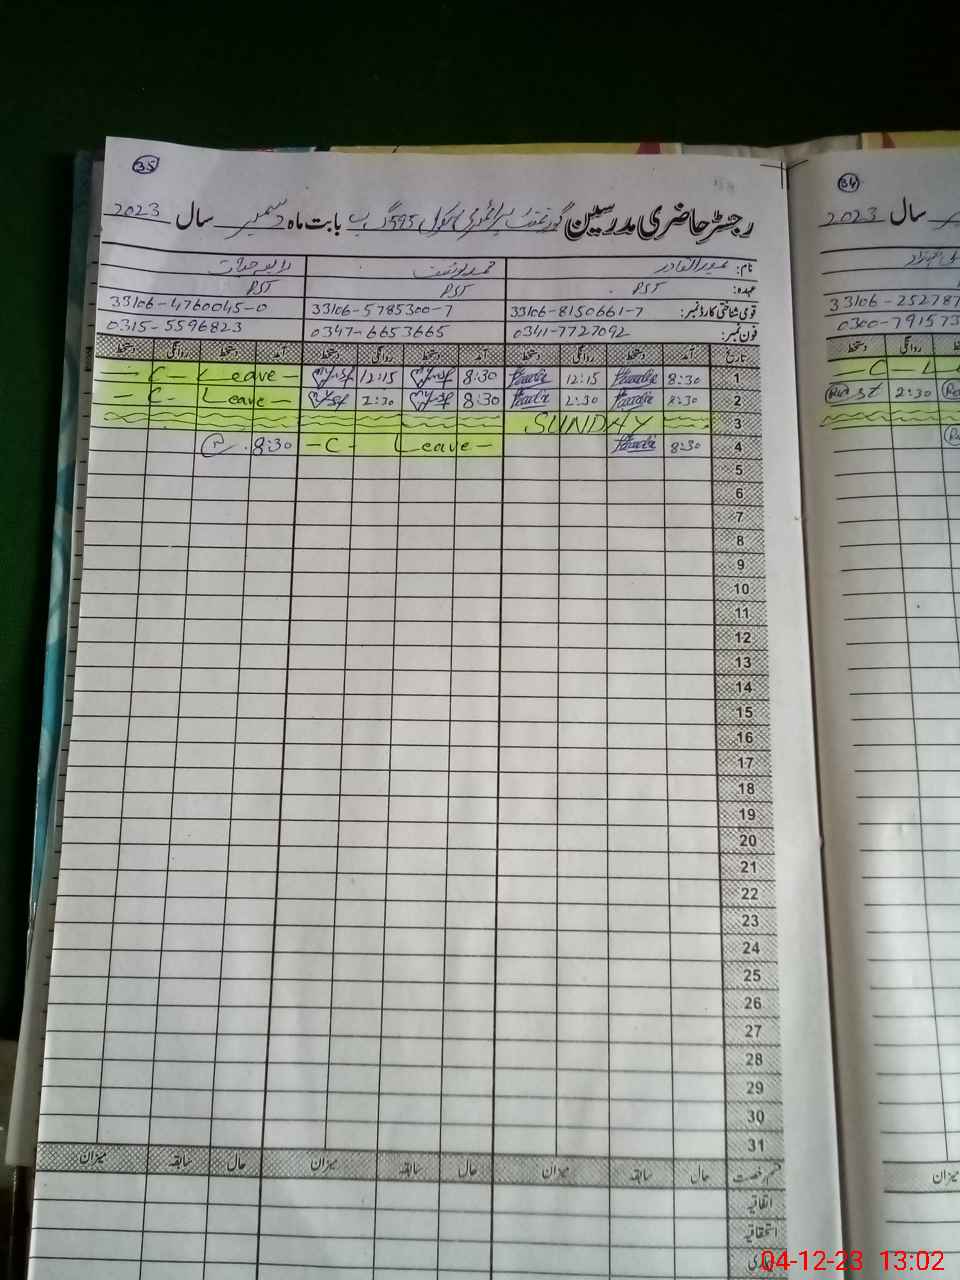 35
رجسٹر حاضری مدرسین گورنمنٹ پرائمری سکول 595 گ ب بابت ماہ دسمبر سال 2023
نام:
عہدہ: PST PST PST
قومی شناختی کارڈ نمبر: 33106-8150661-7 33106-5785300-7 33106-4760045-0
فون نمبر: 0341-7727092 0347-6653665 0315-5596823
تاریخ آمد دستخط روانگی دستخط آمد دستخط روانگی دستخط آمد دستخط روانگی دستخط
1 8:30 12:15 8:30 12:15 - C - Leave -
2 8:30 2:30 8:30 2:30 - C - Leave -
3 SUNDAY
4 8:30 - C - Leave - 8:30
5
6
7
8
9
10
11
12
13
14
15
16
17
18
19
20
21
22
23
24
25
26
27
28
29
30
31
قسم رخصت حال سابقہ میزان حال سابقہ میزان حال سابقہ میزان
اتفاقیہ
استحقاقیہ
34
سال 2023
33106-25278
0300-79157
روانگی دستخط
- C - L
2:30
میزان
04-12-23 13:02